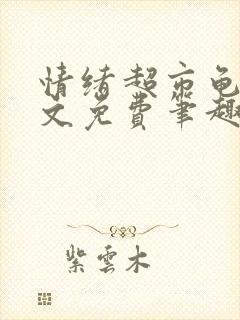 情绪超市龟
文免费笔趣
紫雲木